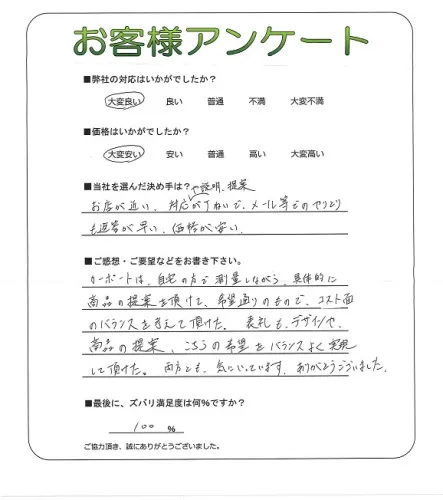 お客様アンケート
■弊社の対応はいかがでしたか?
大変良い 良い 普通 不満 大変不満
■価格はいかがでしたか?
大変安い 安い 普通 高い 大変高い
■当社を選んだ決め手は?
や説明、提案
お店が近い、対応がていねいで、メール等でのやりとり
も返答が早い、価格が安い。
■ご感想・ご要望などをお書き下さい。
カーポートは、自宅の方で測量しながら、具体的に
商品の提案を頂けて、希望通りのもので、コスト面
のバランスを考えて頂けた。 表札も、デザインや、
商品の提案、こちらの希望をバランスよく実現
して頂けた。両方とも、気にいっています。ありがとうございました。
■最後に、ズバリ満足度は何%ですか?
100 %
ご協力頂き、誠にありがとうございました。